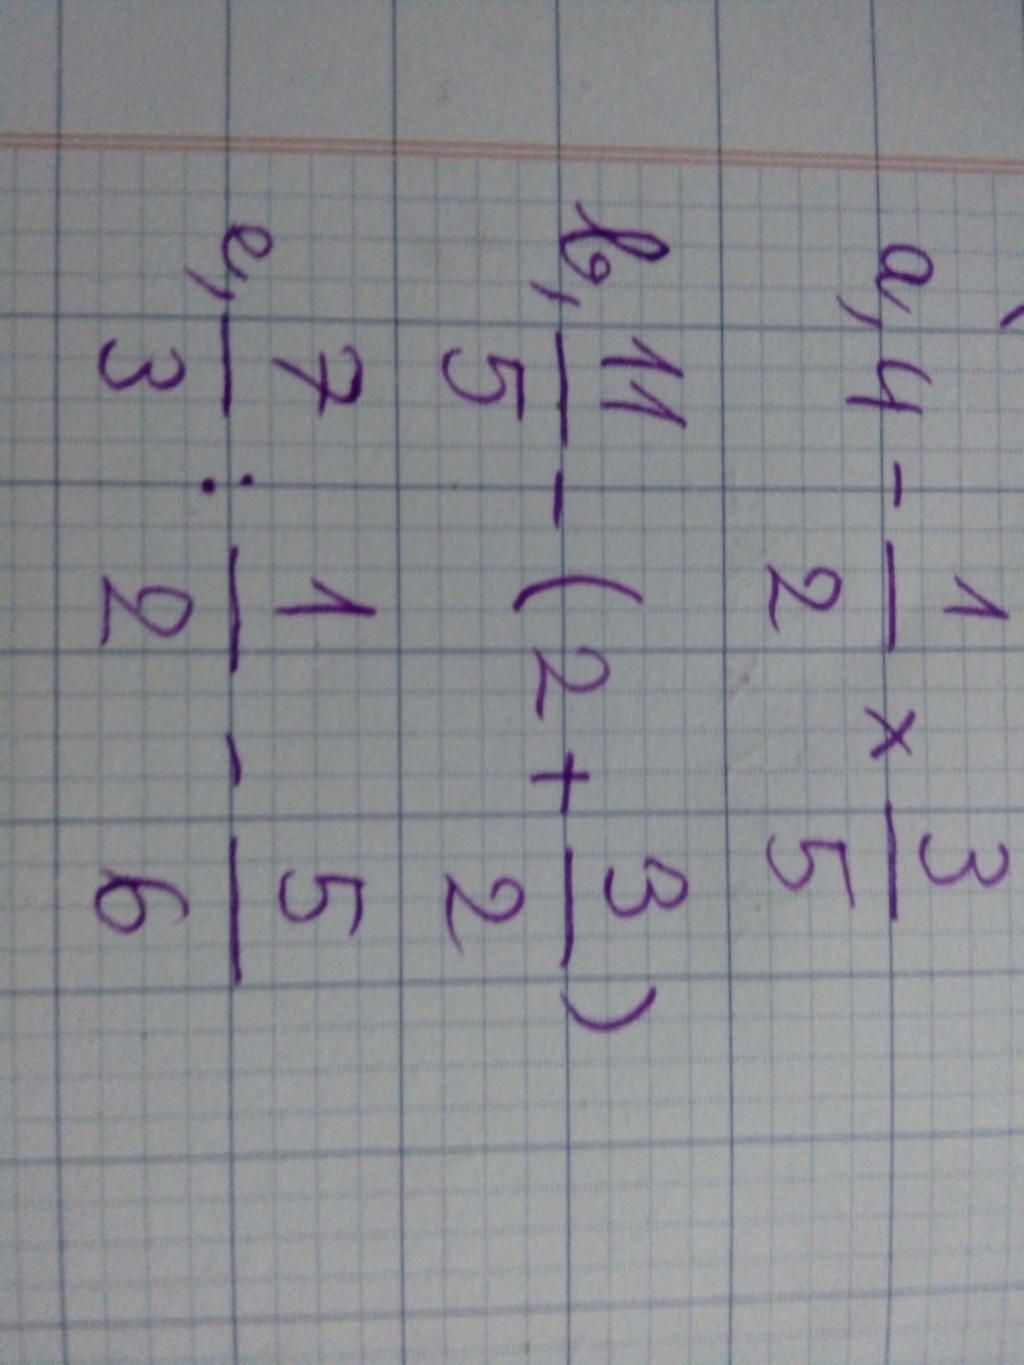 a, 4 - 1/2 x 3/5
b, 11/5 - (2 + 3/2)
c, 7/3 : 1/2 - 5/6